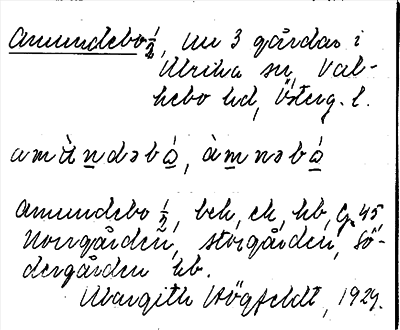 Amundebo ½, nu 3 gårdar i
Ulrika sn, Val-
kebo hd, Österg. l.
amùndəbó, àmnəbó
Amundebo ½, beh, ek, hb, G. 45,
Norrgården, storgården, Sö-
dergården hb.
Margith Högfeldt, 1929.